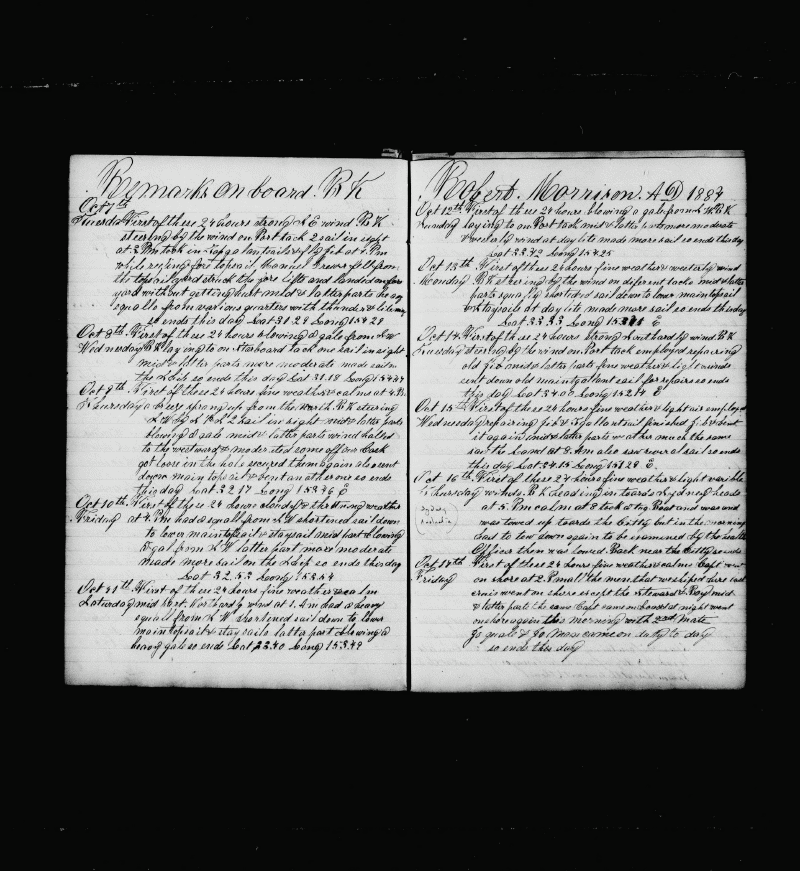 Remarks on board. Bk
Oct 7th
Tuesday First of these 24 hours strong S E wind Bk
steering by the wind on Port tack 2 sail in sight
at 3 Pm took in topgalantsails & fly jib at 4. Pm
while reefing fore topsail Manuel fell from
the topsail yard struck the fore lifts and landed on fore
yard without getting hurt mid & latter parts heavy
squalls from various quarters with thunder &
so ends this day Lat 31.29 Long 154 29
Oct 8th First of these 24 hours blowing a gale from
Wednesday Bk laying to on Starboard tack one sail in sight
mid & latter parts more moderate made sail on
the Ship so ends this day Lat 31.18 Long 154.47
Oct 9th First of these 24 hours fine weather & calms at 4. Pm
Thursday a breeze sprang up from the North Bk steering
S W by S & S 2 sail in sight mid & latter parts
blowing a gale mid & latter parts wind hauled
to the westward & moderated some of our Cask
got loose in the hole secured them again also sent
down main topsail & bent another one so ends
this day Lat 32 17 Long 153 46 E
Oct 10th First of these 24 hours cloudy & thretning weather
Friday at 4. Pm had a squall from S W shortened sail down
to lower maintopsail & staysail mid part blowing
a gal from S W latter part more moderate
made more sail on the Ship so ends this day
Lat 32.53 Long 153.54
Oct 11th First of these 24 hours fine weather & calm
Saturday mid Part. Northard wind at 1. Am had a heavy
squall from S W shortened sail down to lower
maintopsail & stay sails latter part blowing a
heavy gale so ends Lat 33 40 Long 153.49
Robert. Morrison. AD 1884
Oct 12th First of these 24 hours blowing a gale from S W. Bk
Sunday laying to on Port tack mid & latter parts more moderate
& westerly wind at day lite made more sail so ends this day
Lat 33.42 Long 154.25
Oct 13th First of these 24 hours fine weather & westerly wind
Monday Bk steering by the wind on deferent tacks mid & latter
parts squally shortened sail down to lower maintopsail
& staysails at day lite made more sail so ends this day
Lat 33.33 Long 153 E
Oct 14 First of these 24 hours strong Southardly wind Bk
Tuesday steering by the wind on Port tack employed repairing
old jib mid & latter part fine weather & light winds
sent down old maintopgalant sail for repairs so ends
this day Lat 34 00 Long 152.14 E
Oct 15th First of these 24 hours fine weather & light air employed
Wednesday repairing Jib & topgallantsail finished Jib & bent
it again mid & latter parts weather much the same
saw the Land at 8. Am also saw several sail so ends
this day Lat 34.15 Long 151 28 E.
Oct 16th First of these 24 hours fine weather & light varible
Thursday winds Bk heading in toards Sydney heads
at 5. Pm calm at 8 took a tug Boat and was
was towed up toards the Citty but in the morning
had to tow down again to be examined by the health
Officer then was towed Back near the Citty so ends
Oct 17th First of these 24 hours fine weather & calms Capt went
Friday on shore at 2. Pm all the men that we shiped here last
went on shore except the steward & Boy mid
& latter parts the same Capt came on board at night went
on shore again this morning with 2nd Mate
came on duty to day
so ends this day